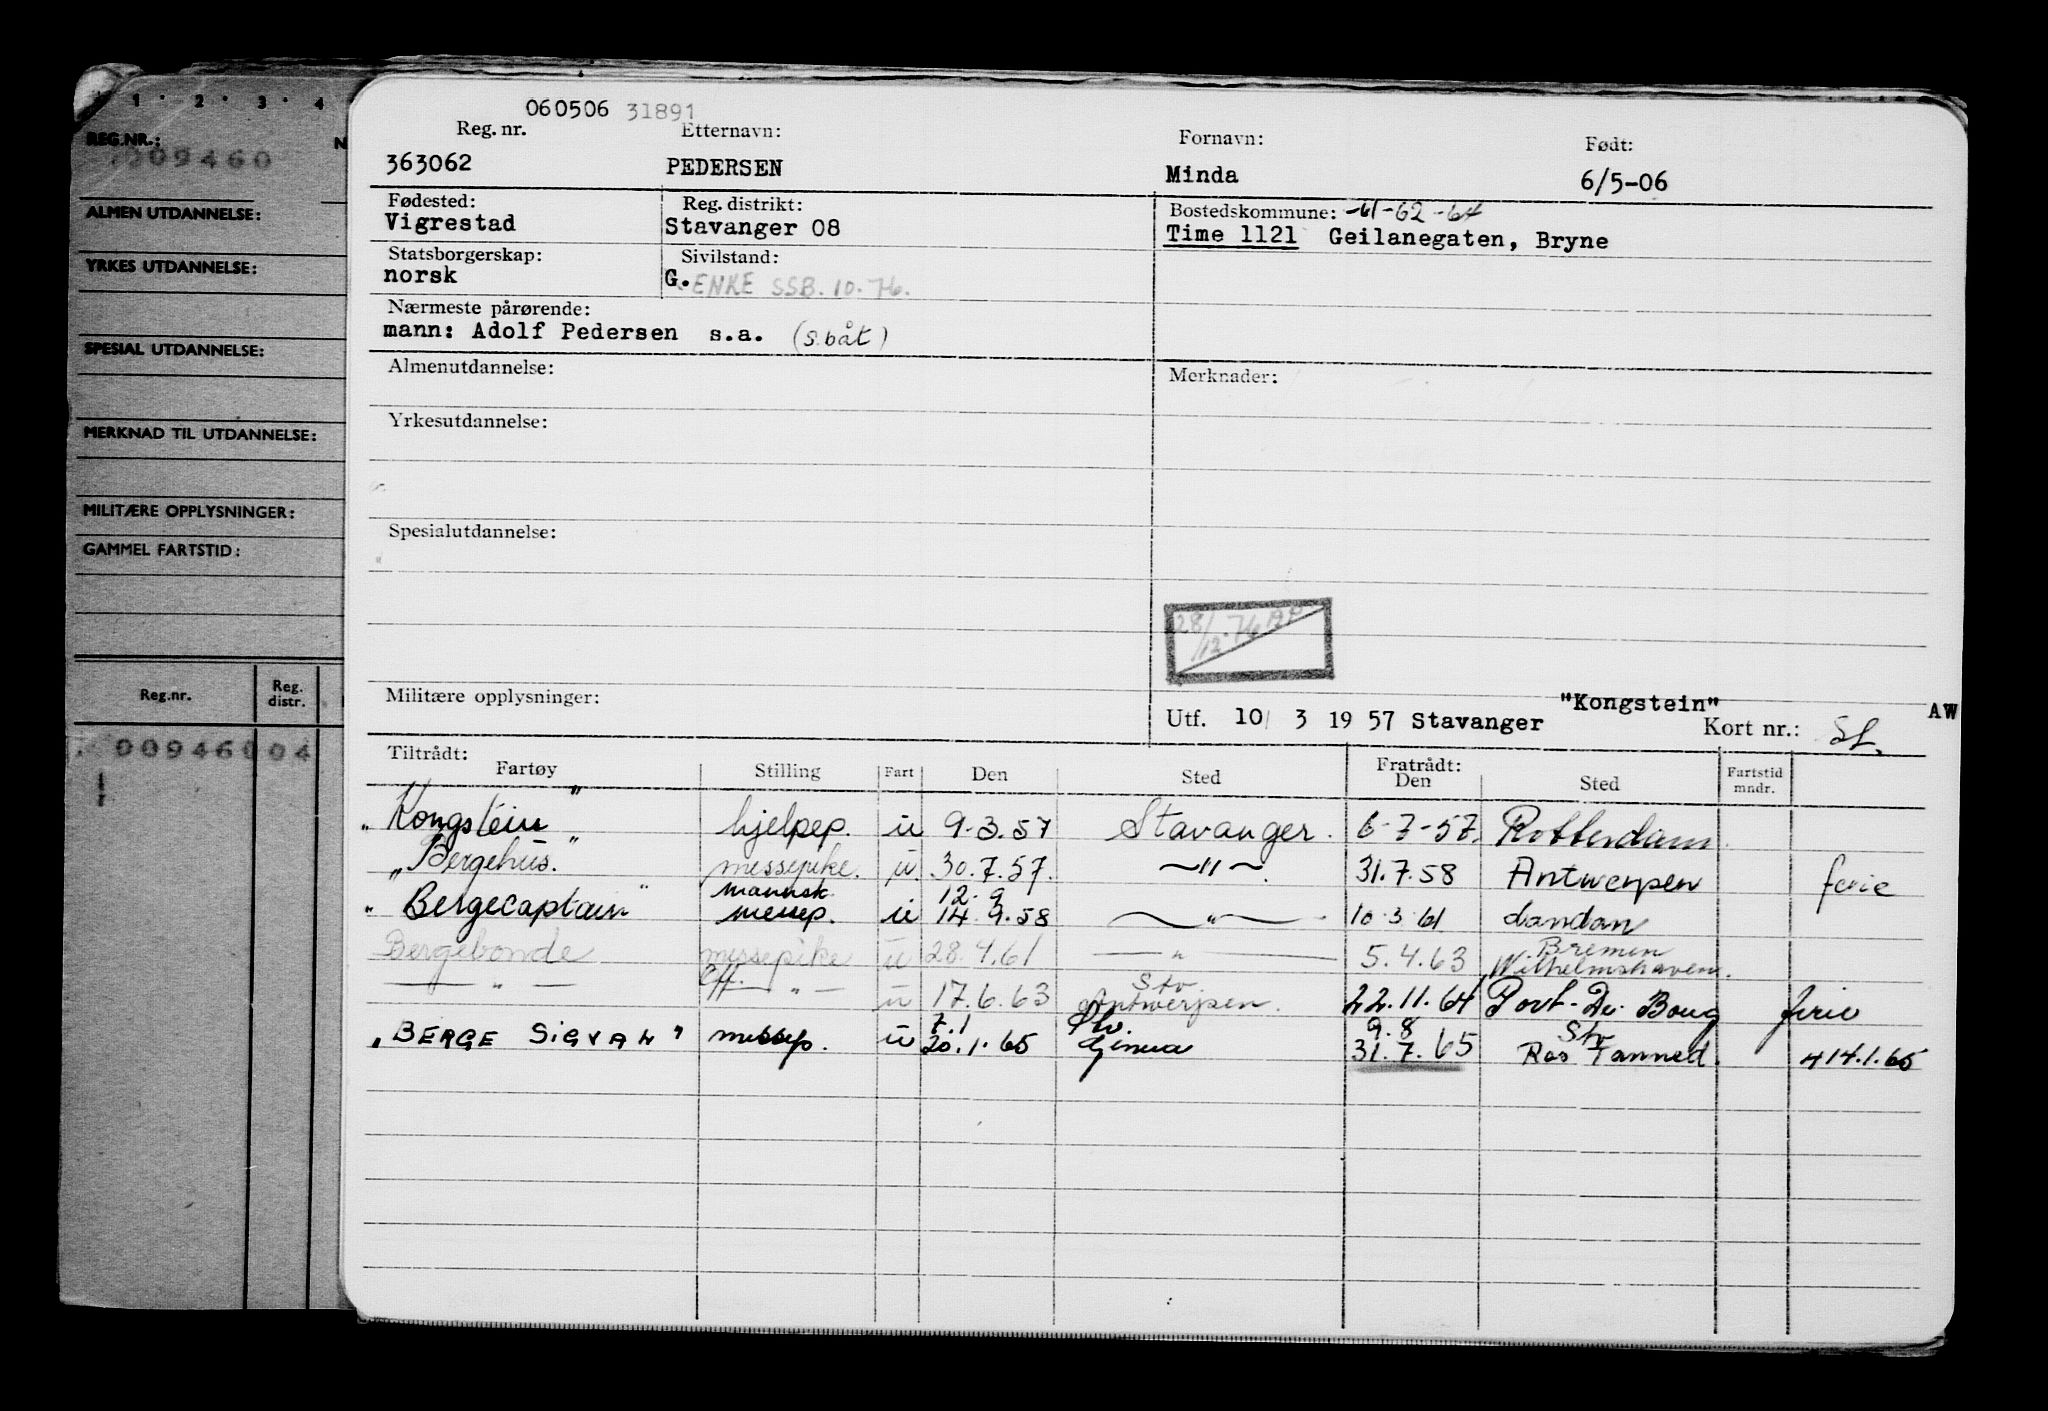 1 · 2 · 3 · 4
REG.NR.: N
009460
ALMEN UTDANNELSE:
YRKES UTDANNELSE:
SPESIAL UTDANNELSE:
MERKNAD TIL UTDANNELSE:
MILITÆRE OPPLYSNINGER:
GAMMEL FARTSTID:
Reg.nr. Reg. distr.
009460 04
060506 31891
Reg. nr. Etternavn: Fornavn: Født:
363062 PEDERSEN Minda 6/5-06
Fødested: Reg. distrikt: Bostedskommune: -61-62-64
Vigrestad Stavanger 08 Time 1121 Geilanegaten, Bryne
Statsborgerskap: Sivilstand:
norsk G. ENKE SSB. 10.76.
Nærmeste pårørende:
mann: Adolf Pedersen s.a. (s.båt)
Almenutdannelse: Merknader:
Yrkesutdannelse:
Spesialutdannelse:
28/12.76
Militære opplysninger:
"Kongstein" AW
Utf. 10/ 3 19 57 Stavanger Kort nr.:
Tiltrådt: Fratrådt:
Fartøy Stilling Fart Den Sted Den Sted Fartstid mndr.
"Kongstein" hjelpep. u 9.3.57 Stavanger. 6-7-57 Rotterdam.
"Bergehus." messepike. u. 30.7.57. —"— 31.7.58 Antwerpen ferie
mannsk. 12.9
"Bergecaptain" messep. u 14.9.58 —"— 10.3.61 London
Bergebonde messepike u 28.4.61 —"— 5.4.63 Bremen
Wilhelmshaven.
Off. Stv.
—"— —"— u 17.6.63 Antwerpen. 22.11.64 Port-De-Boug ferie
7.1 Stv. 9.8 Stv
"BERGE SIGVAL" messep. u 20.1.65 Genua 31.7.65 Ras Tanned. 414.1.65